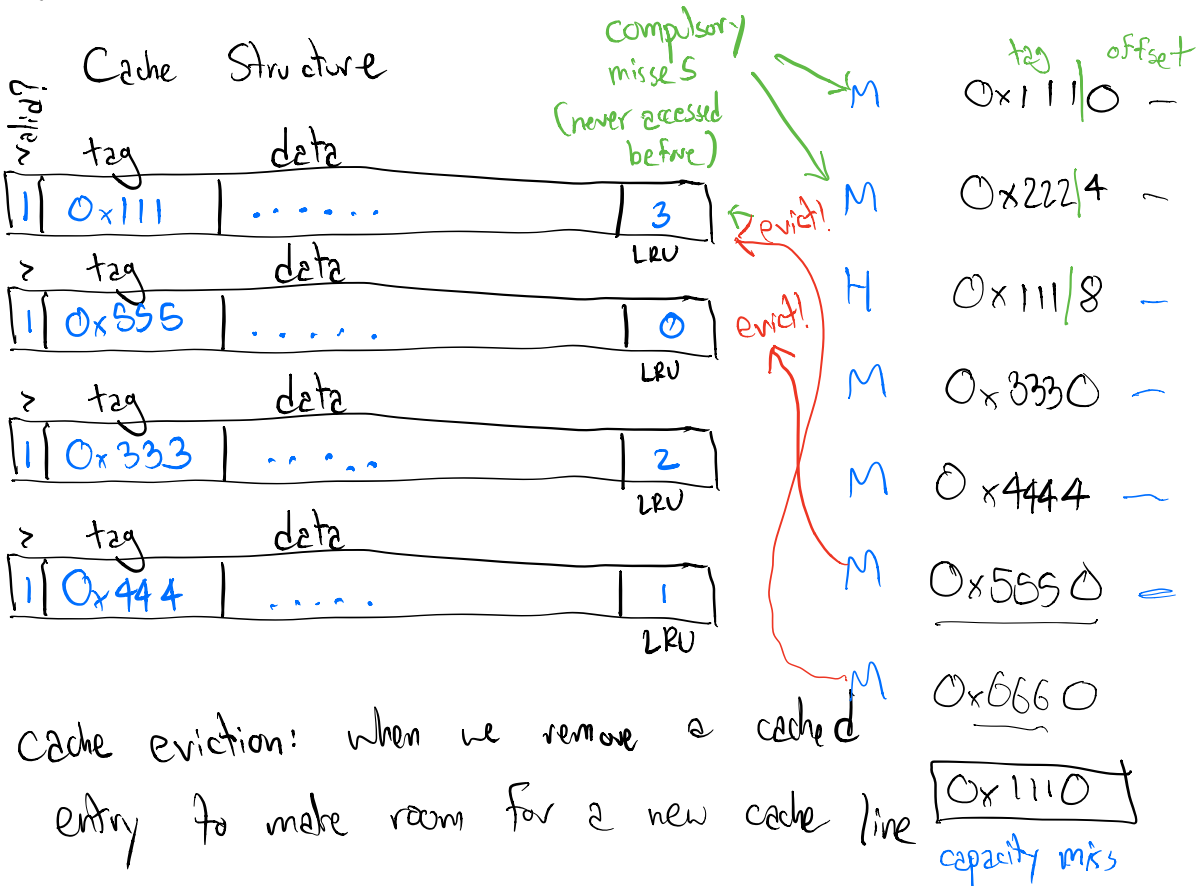 Cache Structure
valid?
tag data
1 0x111 ...... 3
LRU
v tag data
1 0x555 ..... 0
LRU
v tag data
1 0x333 ..... 2
LRU
v tag data
1 0x444 ..... 1
LRU
compulsory
misses
(never accessed
before)
evict!
evict!
tag offset
M 0x111|0 –
M 0x222|4 –
H 0x111|8 –
M 0x3330 –
M 0x4444 –
M 0x5550 –
M 0x6660
0x1110
capacity miss
cache eviction: when we remove a cached
entry to make room for a new cache line